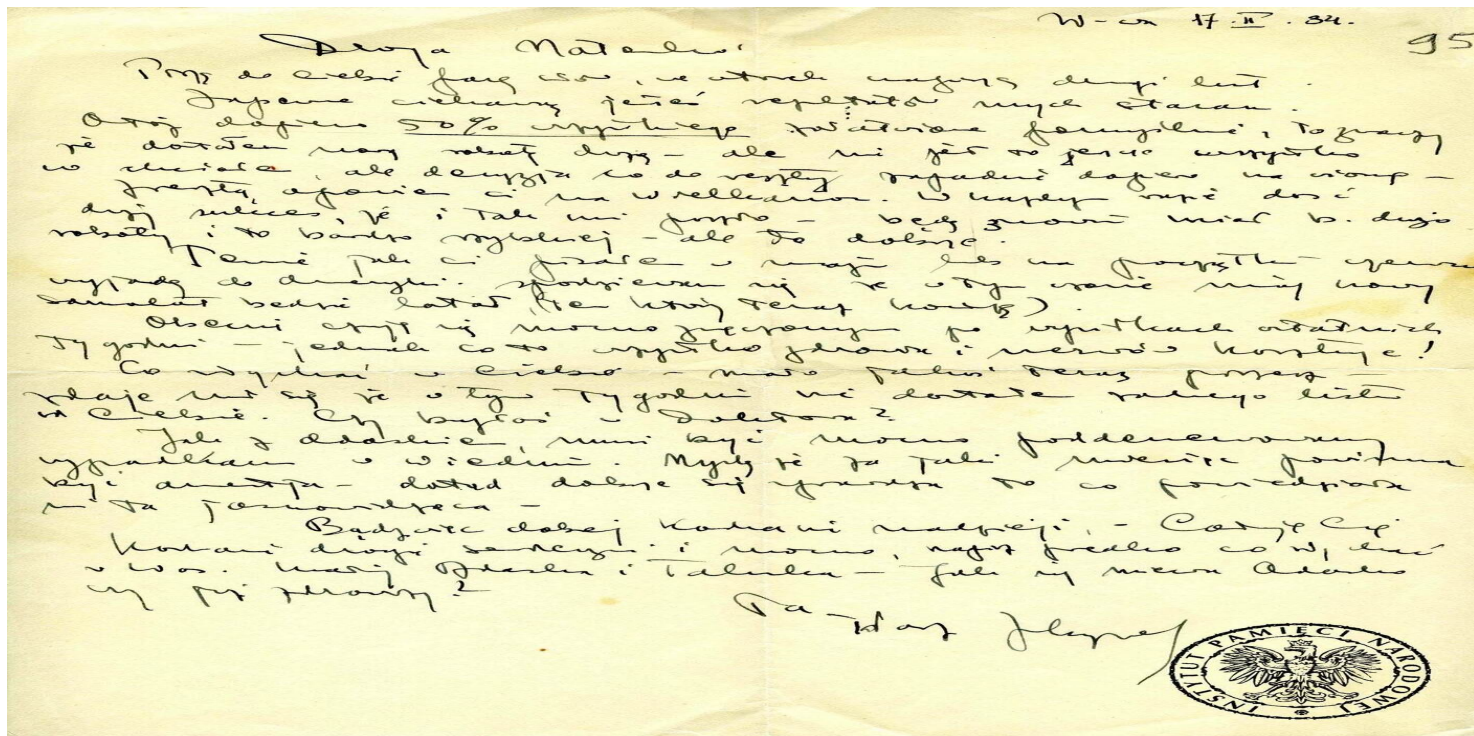 W-wa 17.II.34.
95
Droga
Piszę do Ciebie parę słów, we wtorek napiszę drugi list.
Zapewne ciekawą jesteś rezultatów mych starań.
Otóż dopiero 50% wszystkiego załatwione pomyślnie, to znaczy
że dostałem nową robotę dużą – ale nie jest to jeszcze wszystko
w, ale decyzja co do reszty zapadnie dopiero na wiosnę –
zresztą opowiem Ci na Wielkanoc. W każdym razie dość
duży sukces, że i tak mi poszło – będę znowu miał b. dużo
roboty i to bardzo szybkiej – ale to dobrze.
Pewnie jak Ci pisałem w maju lub na początku czerwca
wyjadę do Ameryki. Spodziewam się że w tym czasie mój nowy
samolot będzie latał (ten który teraz kończę)
Obecnie czuję się mocno zmęczonym po wysiłkach ostatnich
tygodni – jednak co to wszystko zdrowia i nerwów kosztuje!
Co słychać u Ciebie – mało jakoś teraz piszesz –
zdaje mi się że w tym tygodniu nie dostałem żadnego listu
od Ciebie. Czy byłaś u Doktora?
Jak z Adasiem, musi być mocno podenerwowany
wypadkami w Wiedniu. Myślę że za jaki miesiąc powinna
być amnestja – dotąd dobrze się sprawdza to co powiedziała
mi ta jasnowidząca –
Bądź więc dobrej Kochanie nadzieji, – Całuję Cię
Kochanie drogie serdecznie i mocno, napisz prędko co słychać
u Was. Adasia i – Jak się miewa
czy już zdrowszy?
INSTYTUT PAMIĘCI NARODOWEJ